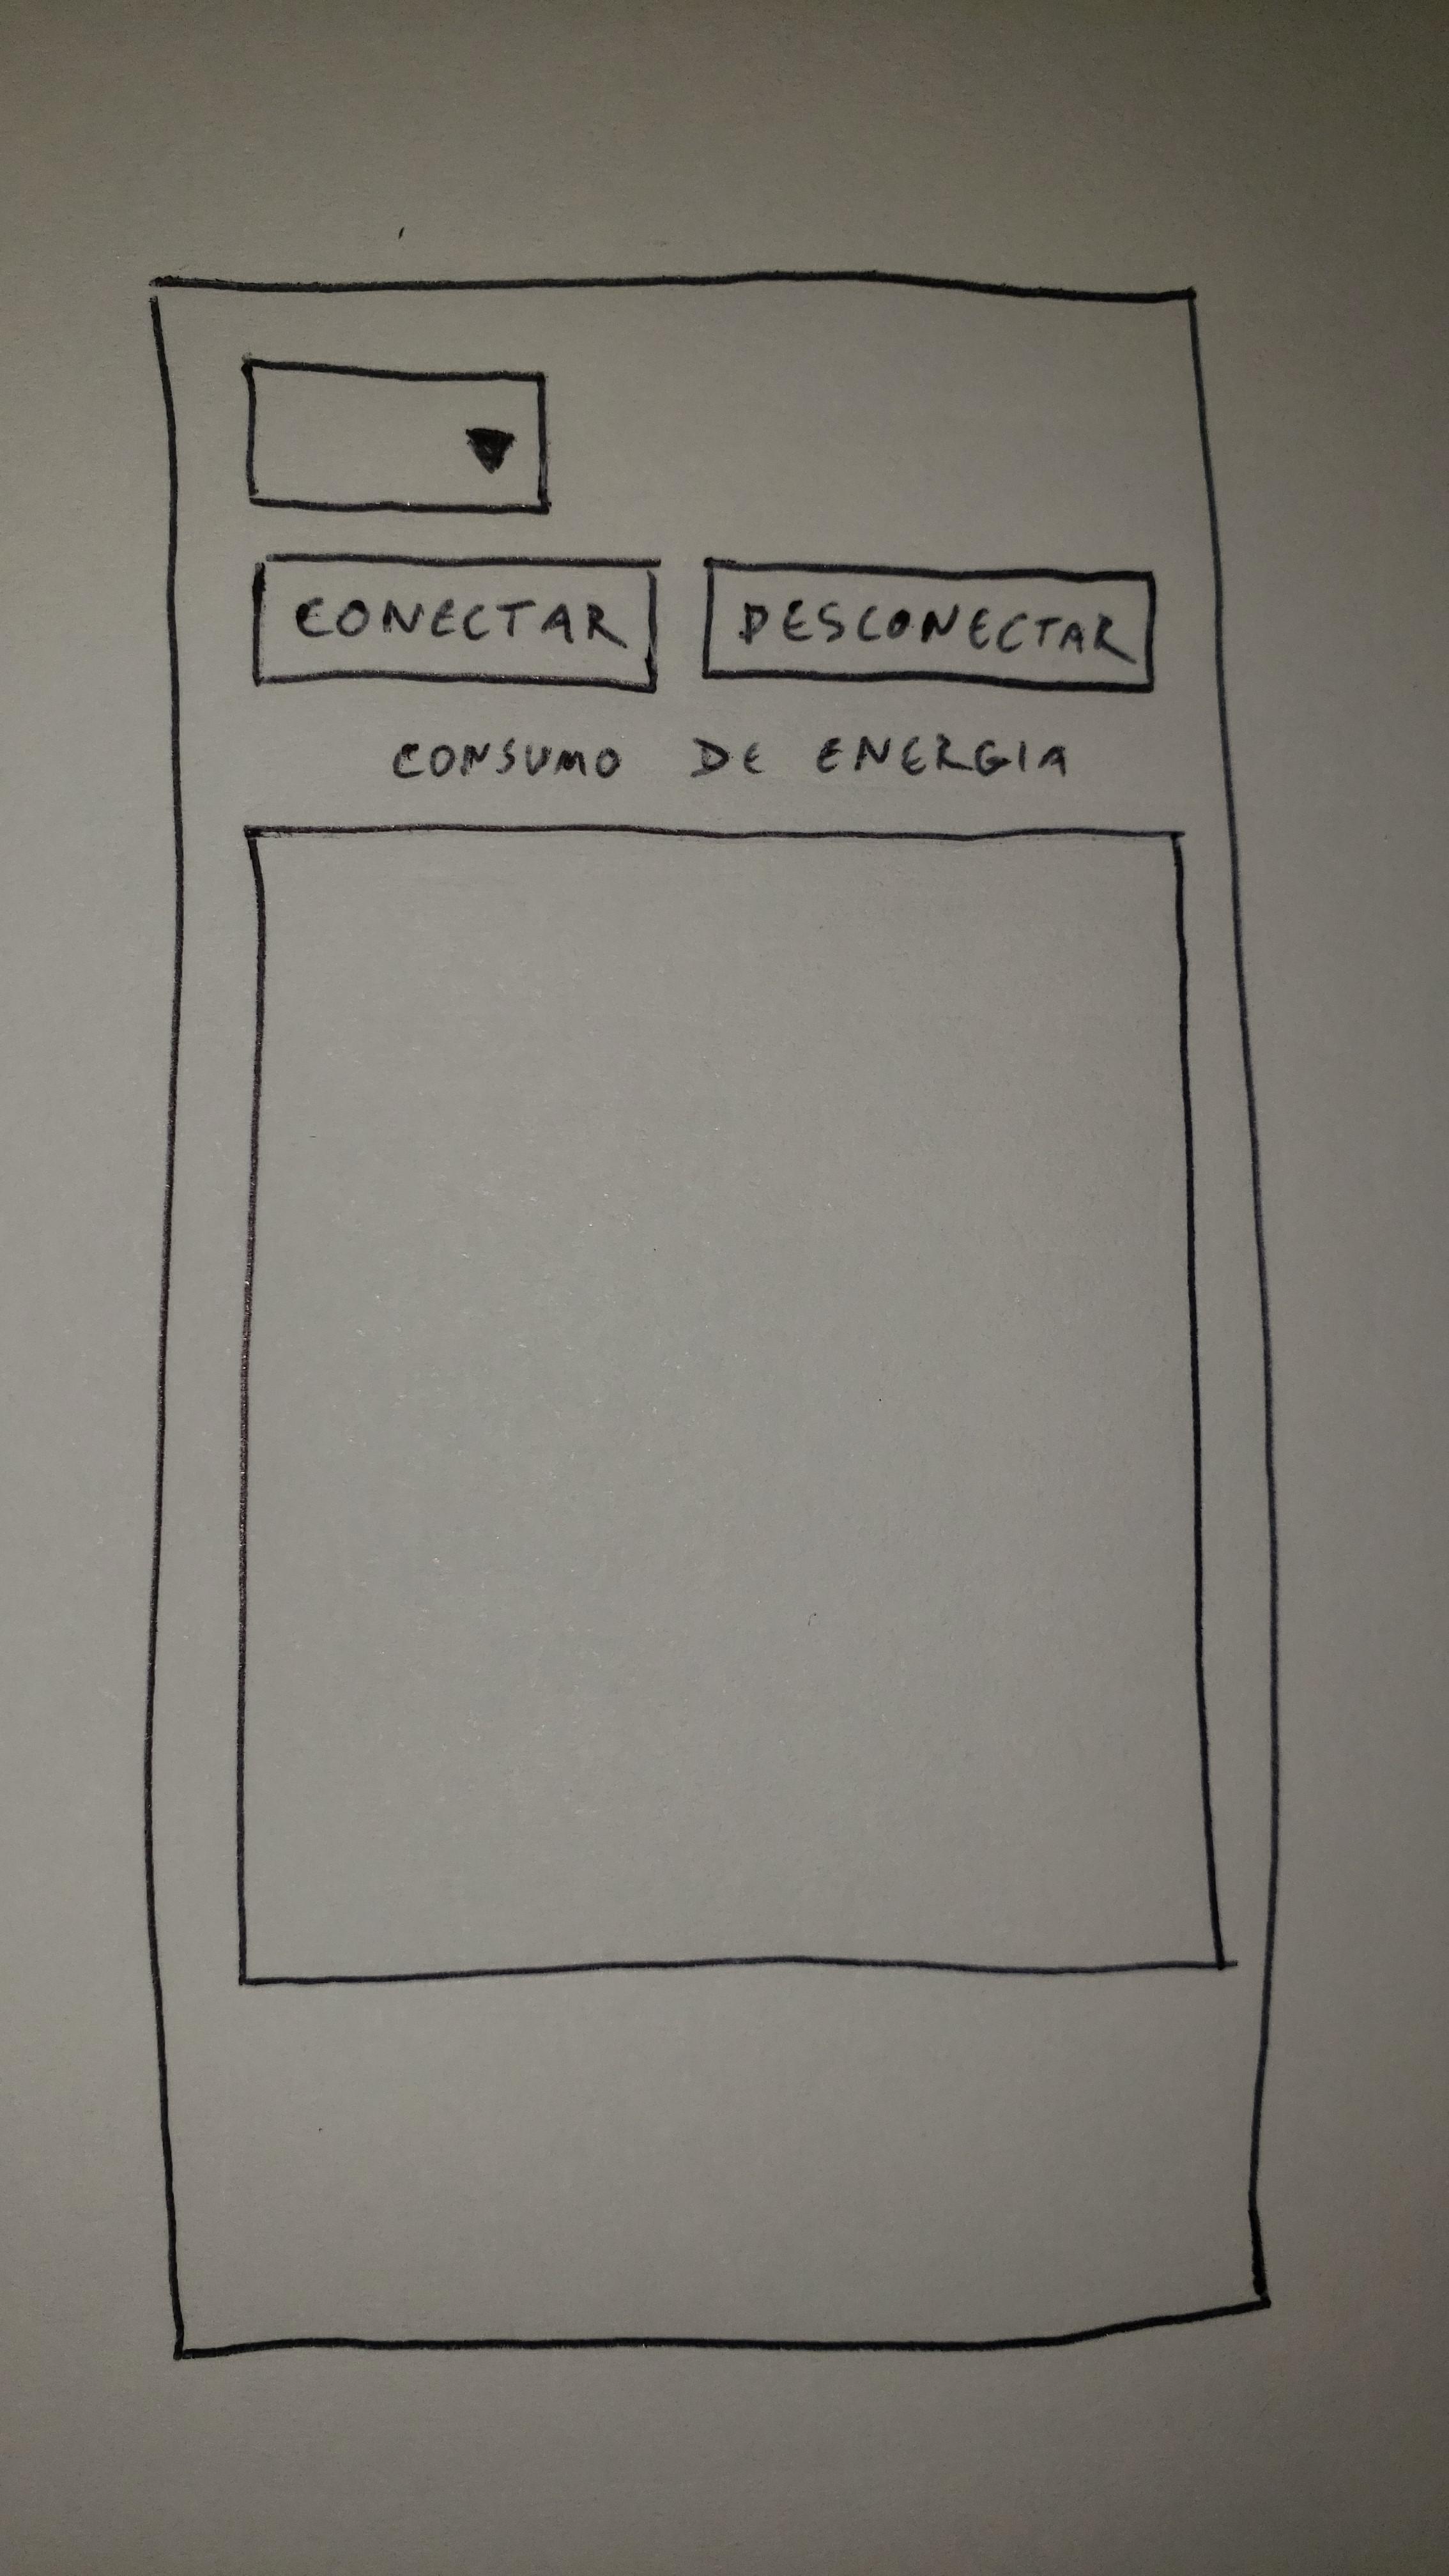 CONECTAR DESCONECTAR
CONSUMO DE ENERGIA